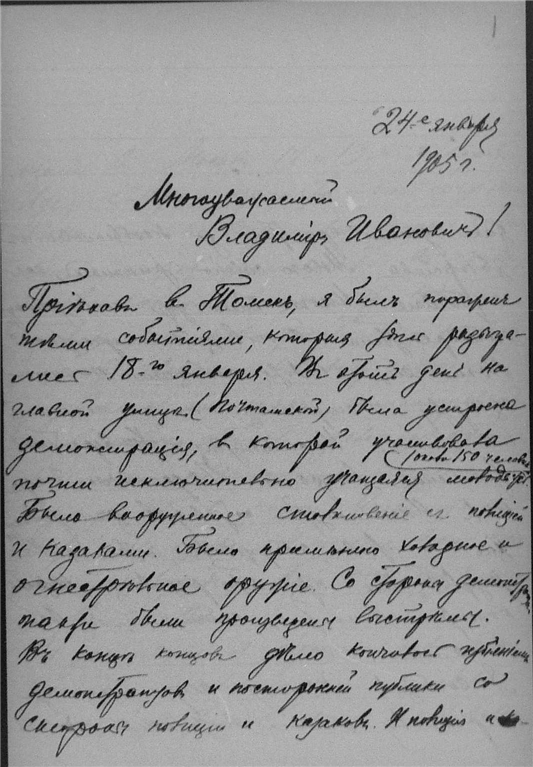 1
24-е января
1905 г.
Многоуважаемый
Владиміръ Ивановичъ!
Пріѣхавъ в Томскъ, я былъ пораженъ
тѣми событіями, которыя разыгра-
лись 18-го января. Въ этотъ день на
главной улицѣ (Почтамской) была устроена
демонстрація, в которой участвовала
(около 150 человѣкъ)
почти исключительно учащаяся молодежь.
Было вооруженное столкновеніе съ полиціей
и казаками. Было примѣнено холодное и
огнестрѣльное оружіе. Со стороны демонстран-
тами были произведены выстрѣлы.
Въ концѣ концовъ дѣло кончилось избіеніемъ
демонстрантовъ и посторонней публики со
стороны полиціи и казаковъ. И полиція и